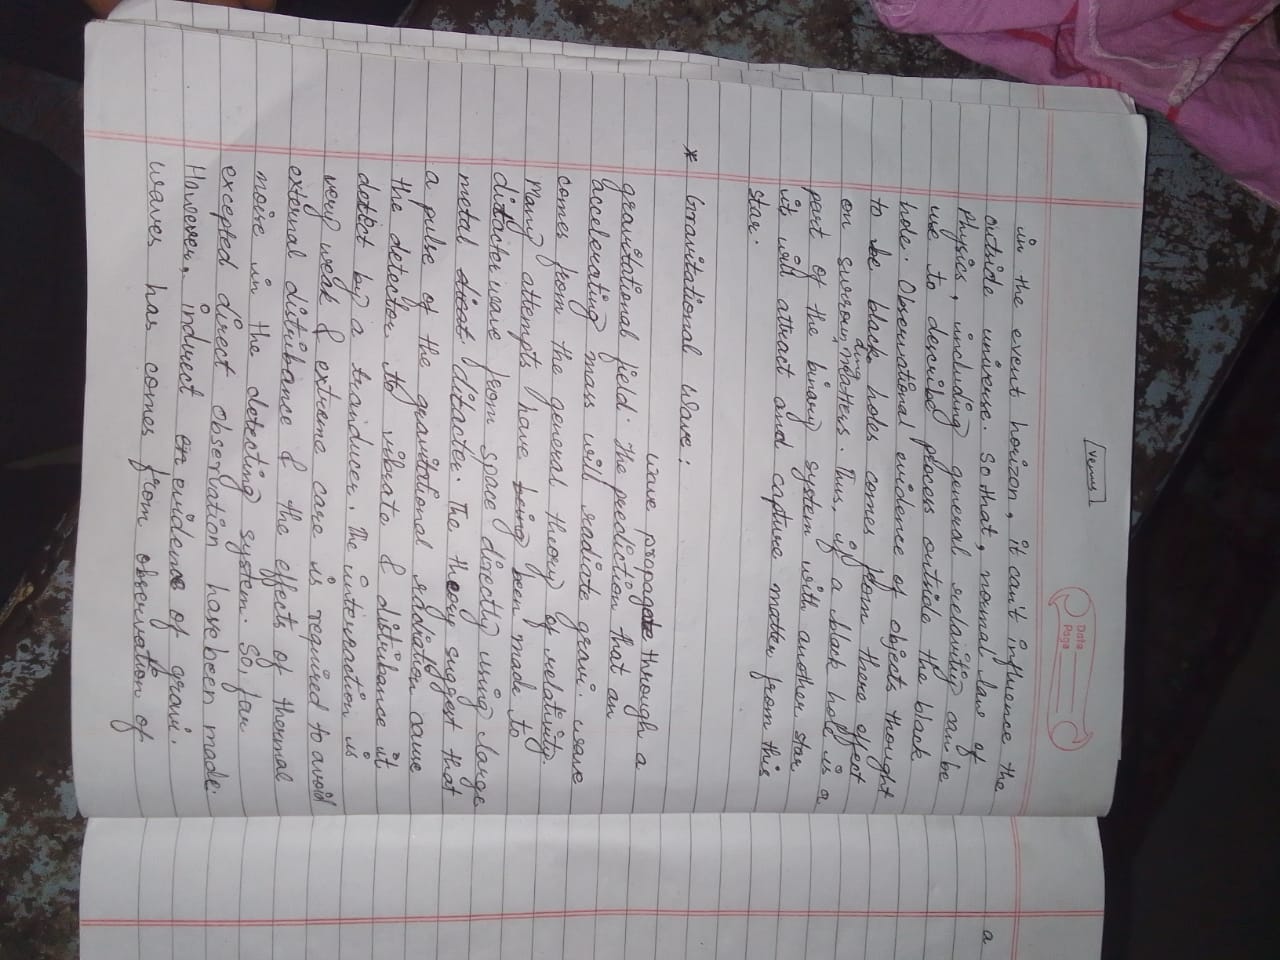 venus
Date
Page
in the event horizon, it can't influence the
outside universe. So that, normal law of
physics, including general relativity can be
use to described process outside the black
hole. Observational evidence of objects thought
to be black holes comes from there effect
on surrounding matters. Thus, if a black hole is a
part of the binary system with another star
its will attract and capture matter from this
star.
* Gravitational Wave :
wave propagate through a
gravitational field. The prediction that an
accelerating mass will radiate gravi. wave
comes from the general theory of relativity.
Many attempts have being been made to
ditacter wave from space directly using large
metal ditacter. The theory suggest that
a pulse of the gravitational radiation cause
the detector to vibrate & distribance it
detect by a tranducer. The intereation is
very weak & extreme care is required to avoid
external distribance & the effects of thermal
noise in the detecting system. So, far
excepted direct observation have been made.
However, indirect evidence of gravi.
waves has comes from observation of
a